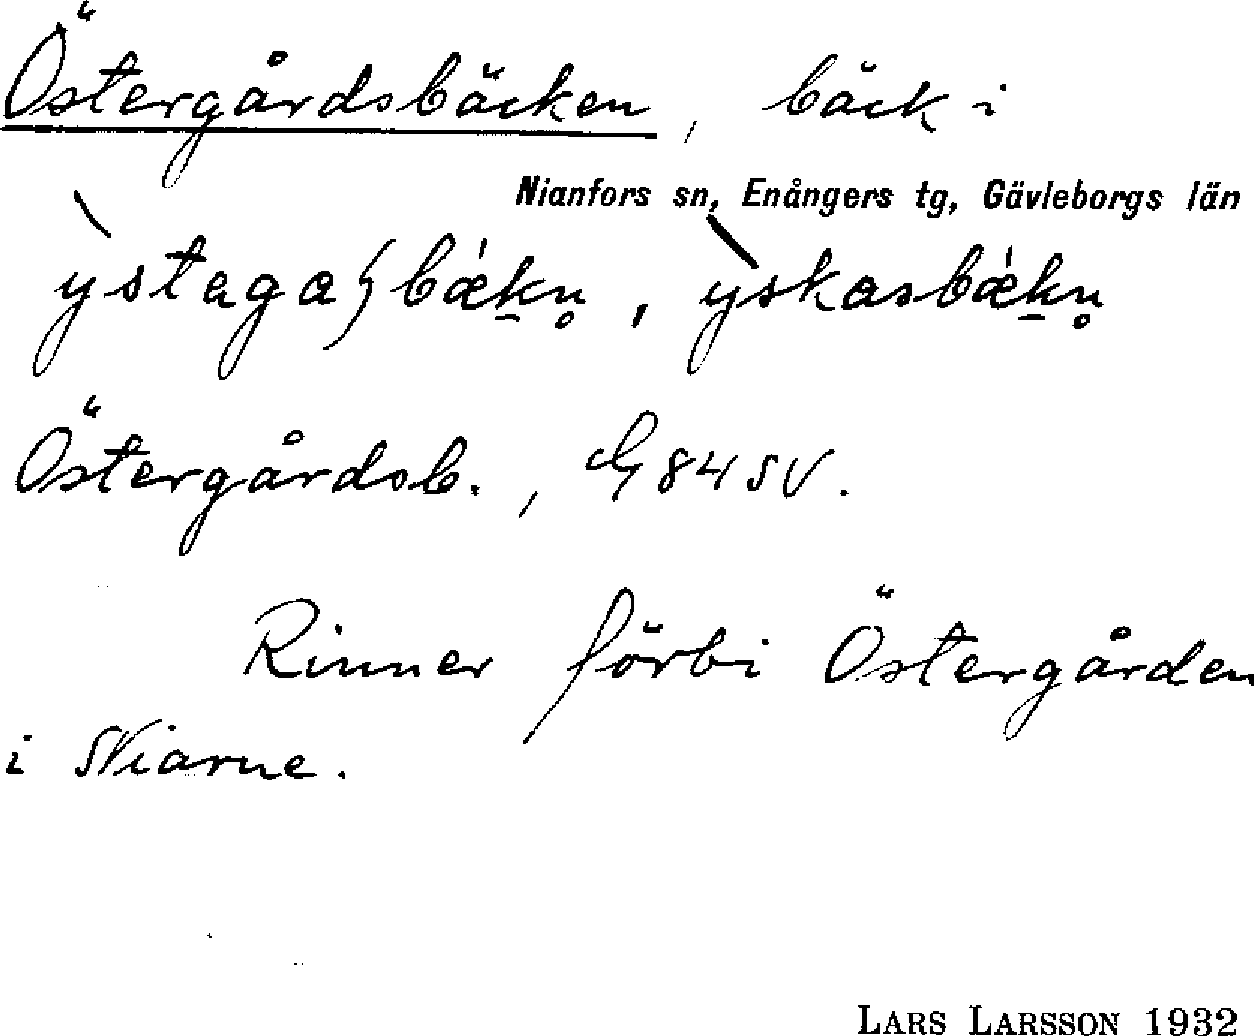 Östergårdsbäcken, bäck i
Nianfors sn, Enångers tg, Gävleborgs län
Östergårdsb., G 84 SV.
Rinner förbi Östergården
i Niarne.
LARS LARSSON 1932